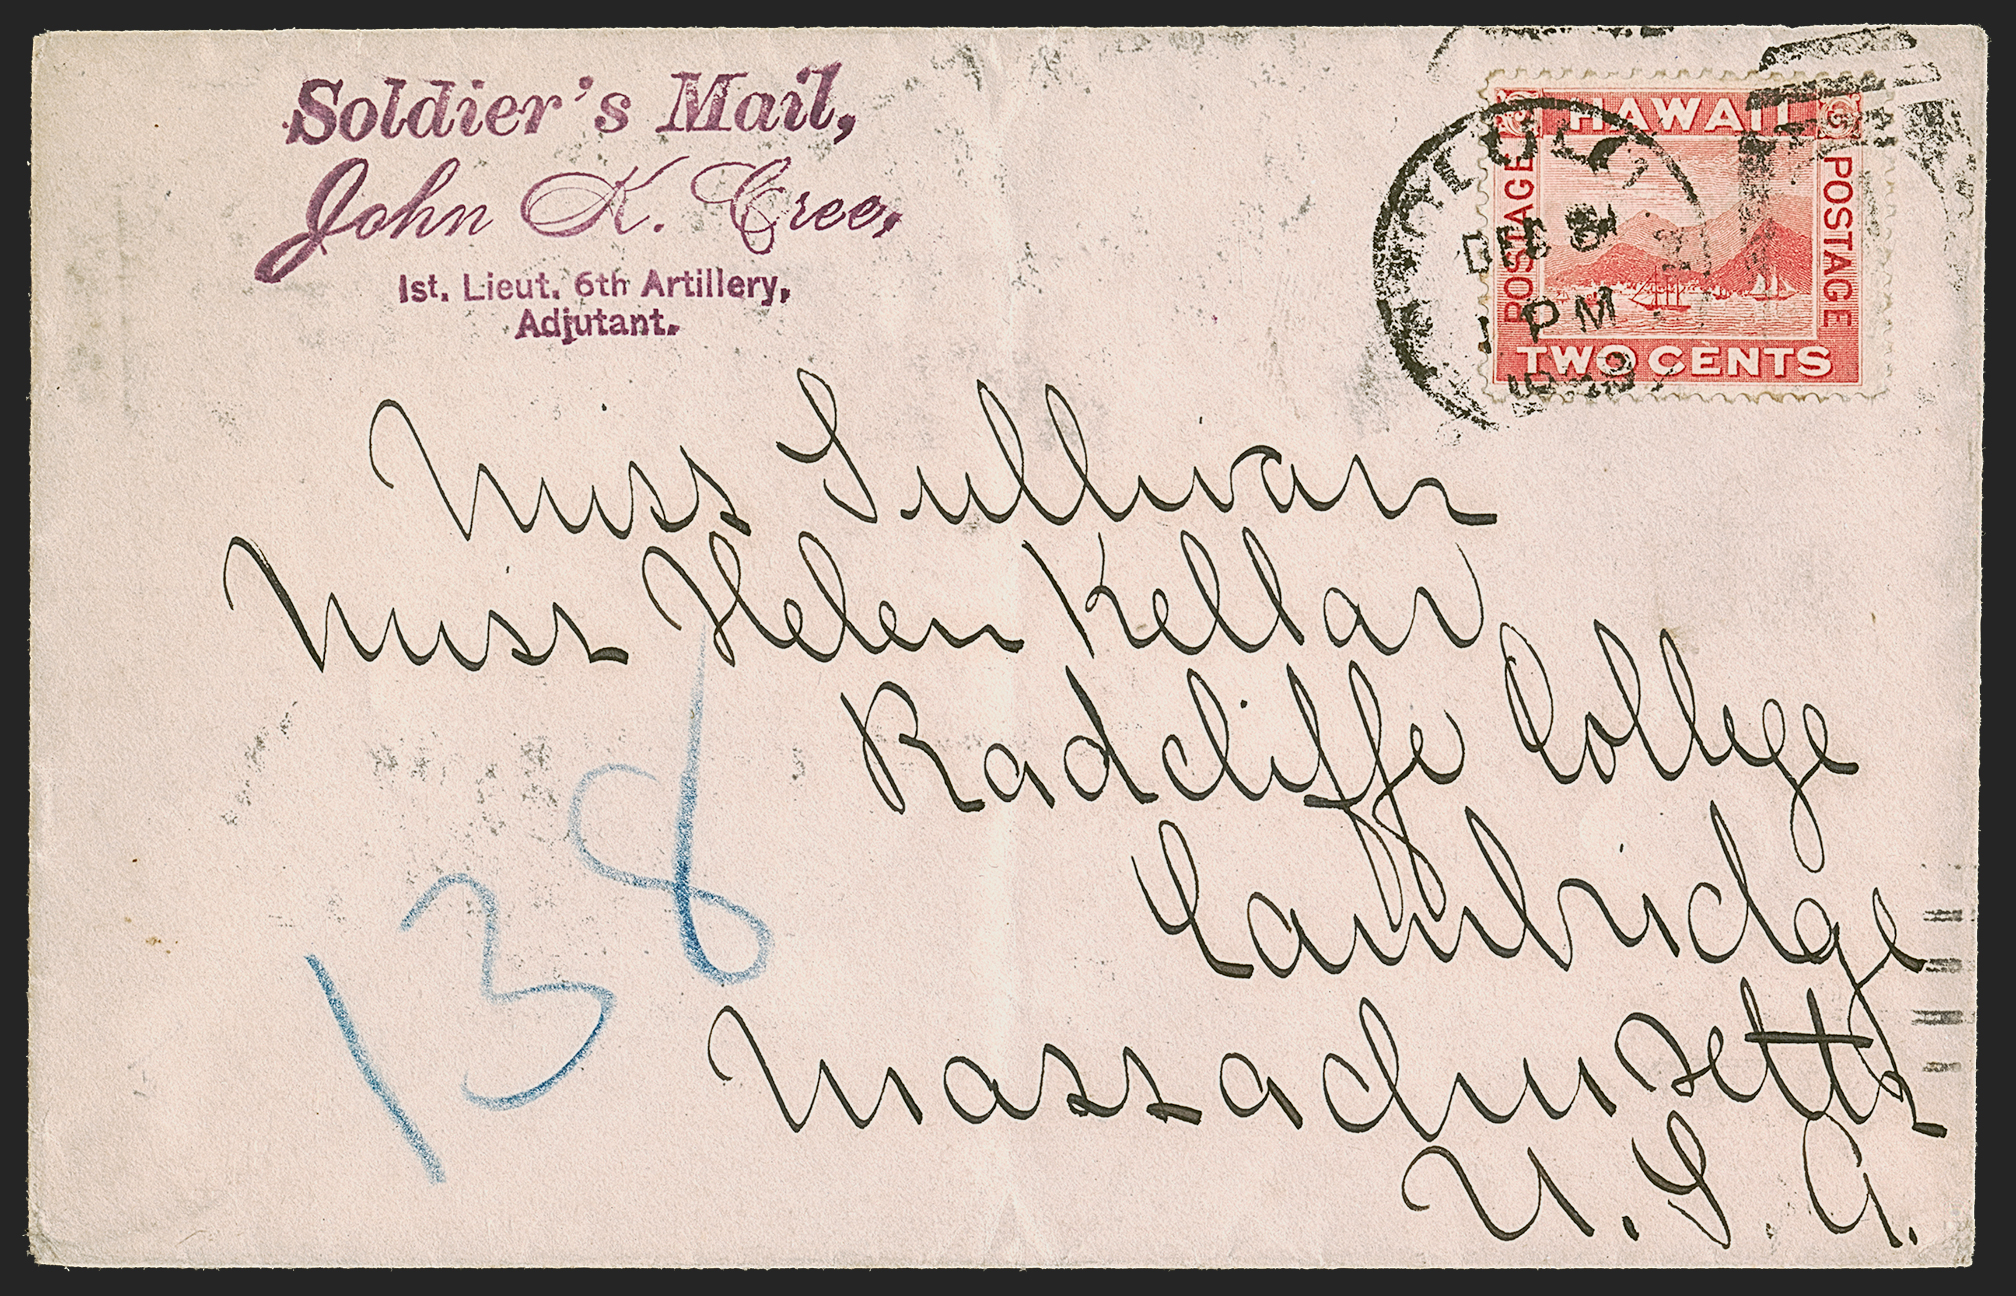 Soldier's Mail,
John K. Cree,
1st. Lieut. 6th Artillery,
Adjutant.
HAWAII
POSTAGE
POSTAGE
TWO CENTS
DEC
1 PM
Miss Sullivan
Miss Helen Kellar
Radcliffe College
Cambridge
Massachusetts
U.S.A.
138